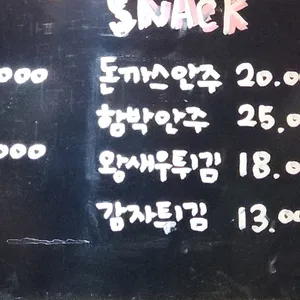 SNACK
000 돈까스안주 20.0
함박안주 25.0
000 왕새우튀김 18.0
감자튀김 13.00